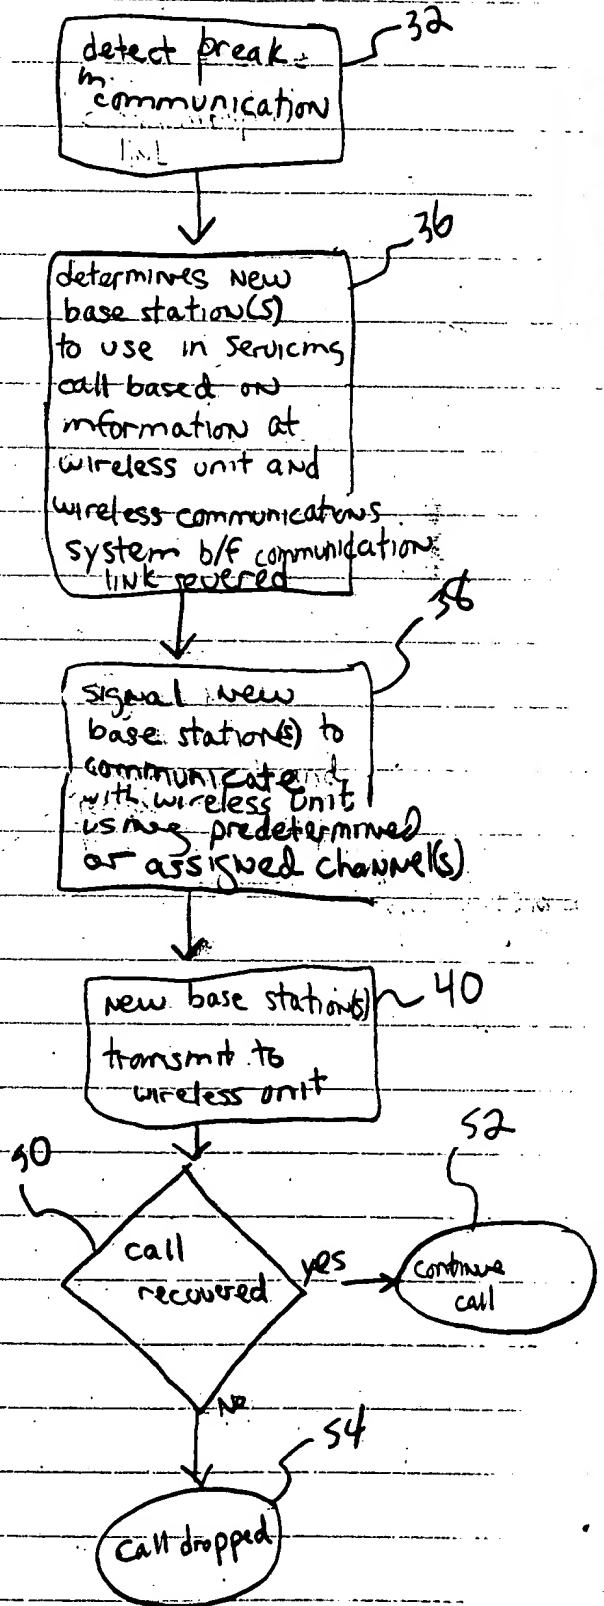 32
detect break
in
communication
link
36
determines new
base station(s)
to use in servicing
call based on
information at
wireless unit and
wireless communications
system b/f communication
link severed
38
signal new
base station(s) to
communicate
with wireless unit
using predetermined
or assigned channel(s)
40
new base station(s)
transmit to
wireless unit
50
52
call
recovered
yes
continue
call
No
54
call dropped